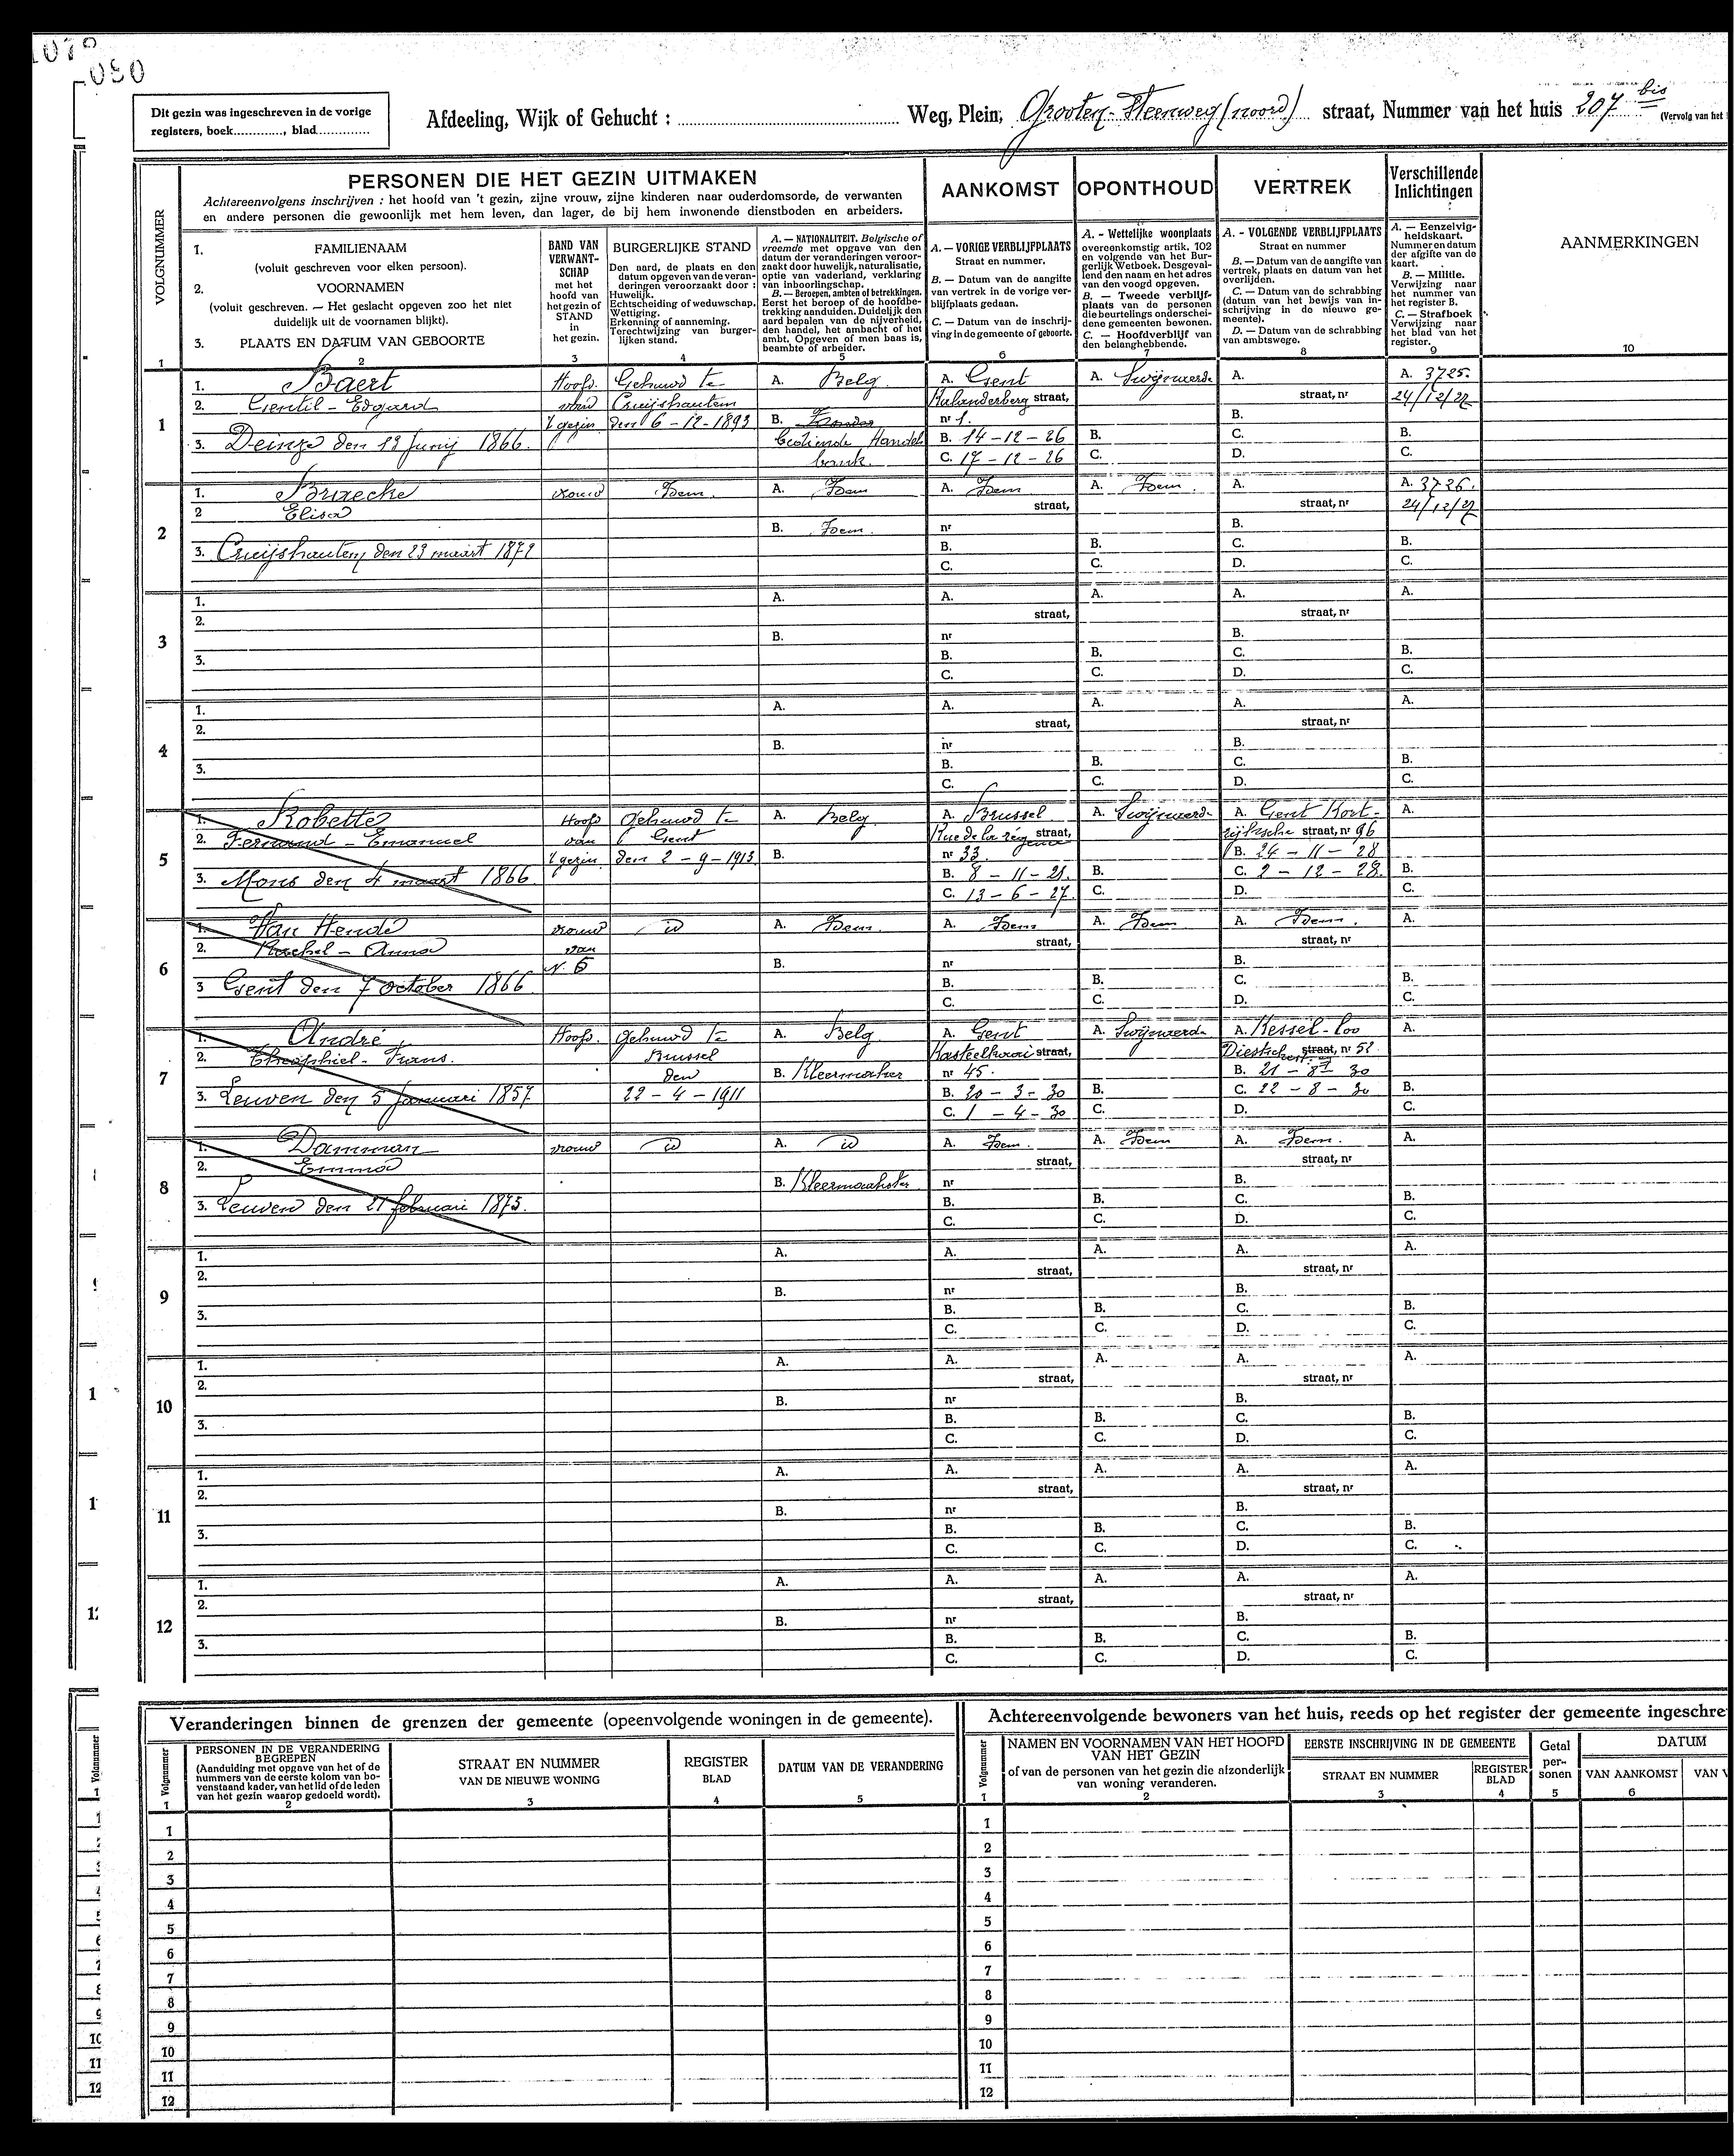 Dit gezin was ingeschreven in de vorige
registers, boek............, blad.............
Afdeeling, Wijk of Gehucht : Weg, Plein, Grooten-Steenweg (noord) straat, Nummer van het huis 207 bis (Vervolg van het
PERSONEN DIE HET GEZIN UITMAKEN
Achtereenvolgens inschrijven : het hoofd van 't gezin, zijne vrouw, zijne kinderen naar ouderdomsorde, de verwanten
en andere personen die gewoonlijk met hem leven, dan lager, de bij hem inwonende dienstboden en arbeiders.
AANKOMST
OPONTHOUD
VERTREK
Verschillende
Inlichtingen
AANMERKINGEN
VOLGNUMMER
1. FAMILIENAAM
(voluit geschreven voor elken persoon).
2. VOORNAMEN
(voluit geschreven. — Het geslacht opgeven zoo het niet
duidelijk uit de voornamen blijkt).
3. PLAATS EN DATUM VAN GEBOORTE
BAND VAN
VERWANT-
SCHAP
met het
hoofd van
het gezin of
STAND
in
het gezin.
BURGERLIJKE STAND
Den aard, de plaats en den
datum opgeven van de veran-
deringen veroorzaakt door :
Huwelijk.
Echtscheiding of weduwschap.
Wettiging.
Erkenning of aanneming.
Terechtwijzing van burger-
lijken stand.
A. — NATIONALITEIT. Belgische of
vreemde met opgave van den
datum der veranderingen veroor-
zaakt door huwelijk, naturalisatie,
optie van vaderland, verklaring
van inboorlingschap.
B. — Beroepen, ambten of betrekkingen.
Eerst het beroep of de hoofdbe-
trekking aanduiden. Duidelijk den
aard bepalen van de nijverheid,
den handel, het ambacht of het
ambt. Opgeven of men baas is,
beambte of arbeider.
A. — VORIGE VERBLIJFPLAATS
Straat en nummer.
B. — Datum van de aangifte
van vertrek in de vorige ver-
blijfplaats gedaan.
C. — Datum van de inschrij-
ving in de gemeente of geboorte.
A. - Wettelijke woonplaats
overeenkomstig artik. 102
en volgende van het Bur-
gerlijk Wetboek. Desgeval-
lend den naam en het adres
van den voogd opgeven.
B. — Tweede verblijf-
plaats van de personen
die beurtelings onderschei-
dene gemeenten bewonen.
C. — Hoofdverblijf van
den belanghebbende.
A. - VOLGENDE VERBLIJFPLAATS
Straat en nummer
B. — Datum van de aangifte van
vertrek, plaats en datum van het
overlijden.
C. — Datum van de schrabbing
(datum van het bewijs van in-
schrijving in de nieuwe ge-
meente).
D. — Datum van de schrabbing
van ambtswege.
A. — Eenzelvig-
heidskaart.
Nummer en datum
der afgifte van de
kaart.
B. — Militie.
Verwijzing naar
het nummer van
het register B.
C. — Strafboek
Verwijzing naar
het blad van het
register.
1 2 3 4 5 6 7 8 9 10
1
1. Baert
2. Gentil - Edgard
3. Deinze den 19 Junij 1866.
Hoofd
van
't gezin
Gehuwd te
Cruijshautem
den 6-12-1893
A. Belg.
B.
Handels
bank.
A. Gent
Kalanderberg straat,
nr 1.
B. 14-12-26
C. 17-12-26
A. Swijnaerde
B.
C.
A.
straat, nr
B.
C.
D.
A. 3725.
24/12/27
B.
C.
2
1. Braecke
2 Elisa
3. Cruijshautem den 23 maart 1872
vrouw
Idem.
A. Idem
B. Idem.
A. Idem
straat,
nr
B.
C.
A. Idem.
B.
C.
A.
straat, nr
B.
C.
D.
A. 3726.
24/12/27
B.
C.
3
4
5
1. Robette
2. Fernand - Emanuel
3. Mons den 4 maart 1866.
Hoofd
van
't gezin
Gehuwd te
Gent
den 2-9-1913
A. Belg
B.
A. Brussel
Rue de la régence straat,
nr 33.
B. 8-11-21.
C. 13-6-27.
A. Swijnaerde
B.
C.
A. Gent Kort-
rijksche straat, nr 96
B. 24-11-28
C. 2-12-28.
D.
A.
B.
C.
6
1. Van Hende
2. Rachel - Anna
3 Gent den 7 october 1866.
vrouw
van
N. 5
id
A. Idem.
B.
A. Idem
straat,
nr
B.
C.
A. Idem
B.
C.
A. Idem.
straat, nr
B.
C.
D.
A.
B.
C.
7
1. André
2. Theophiel - Frans.
3. Leuven den 5 Januari 1857
Hoofd.
gehuwd te
Brussel
den
22-4-1911
A. Belg
B. Kleermaker
A. Gent
Kasteelkaai straat,
nr 45.
B. 20-3-30
C. 1-4-30
A. Swijnaerde
B.
C.
A. Kessel-Loo
Diestsche straat, nr 52
B. 21-8-30
C. 22-8-30
D.
A.
B.
C.
8
1. Damman
2. Emma
3. Leuven den 21 februari 1875.
vrouw
id
A. id
B. Kleermaakster
A. Idem.
straat,
nr
B.
C.
A. Idem
B.
C.
A. Idem.
straat, nr
B.
C.
D.
A.
B.
C.
9
10
11
12
Veranderingen binnen de grenzen der gemeente (opeenvolgende woningen in de gemeente).
Volgnummer
PERSONEN IN DE VERANDERING
BEGREPEN
(Aanduiding met opgave van het of de
nummers van de eerste kolom van bo-
venstaand kader, van het lid of de leden
van het gezin waarop gedoeld wordt).
STRAAT EN NUMMER
VAN DE NIEUWE WONING
REGISTER
BLAD
DATUM VAN DE VERANDERING
1 2 3 4 5
1
2
3
4
5
6
7
8
9
10
11
12
Achtereenvolgende bewoners van het huis, reeds op het register der gemeente ingeschre
Volgnummer
NAMEN EN VOORNAMEN VAN HET HOOFD
VAN HET GEZIN
of van de personen van het gezin die afzonderlijk
van woning veranderen.
EERSTE INSCHRIJVING IN DE GEMEENTE
STRAAT EN NUMMER
REGISTER
BLAD
Getal
per-
sonen
DATUM
VAN AANKOMST
VAN V
1 2 3 4 5 6
1
2
3
4
5
6
7
8
9
10
11
12